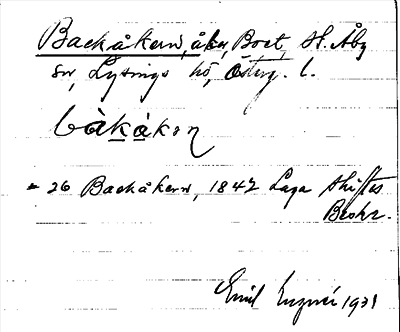 Backåkern, åker, Boet, St. Åby
sn, Lysings hd, Österg. l.
bàkåkan
= 26 Backåkern, 1842 Laga Skiftes
Beskr.
Emil 1931